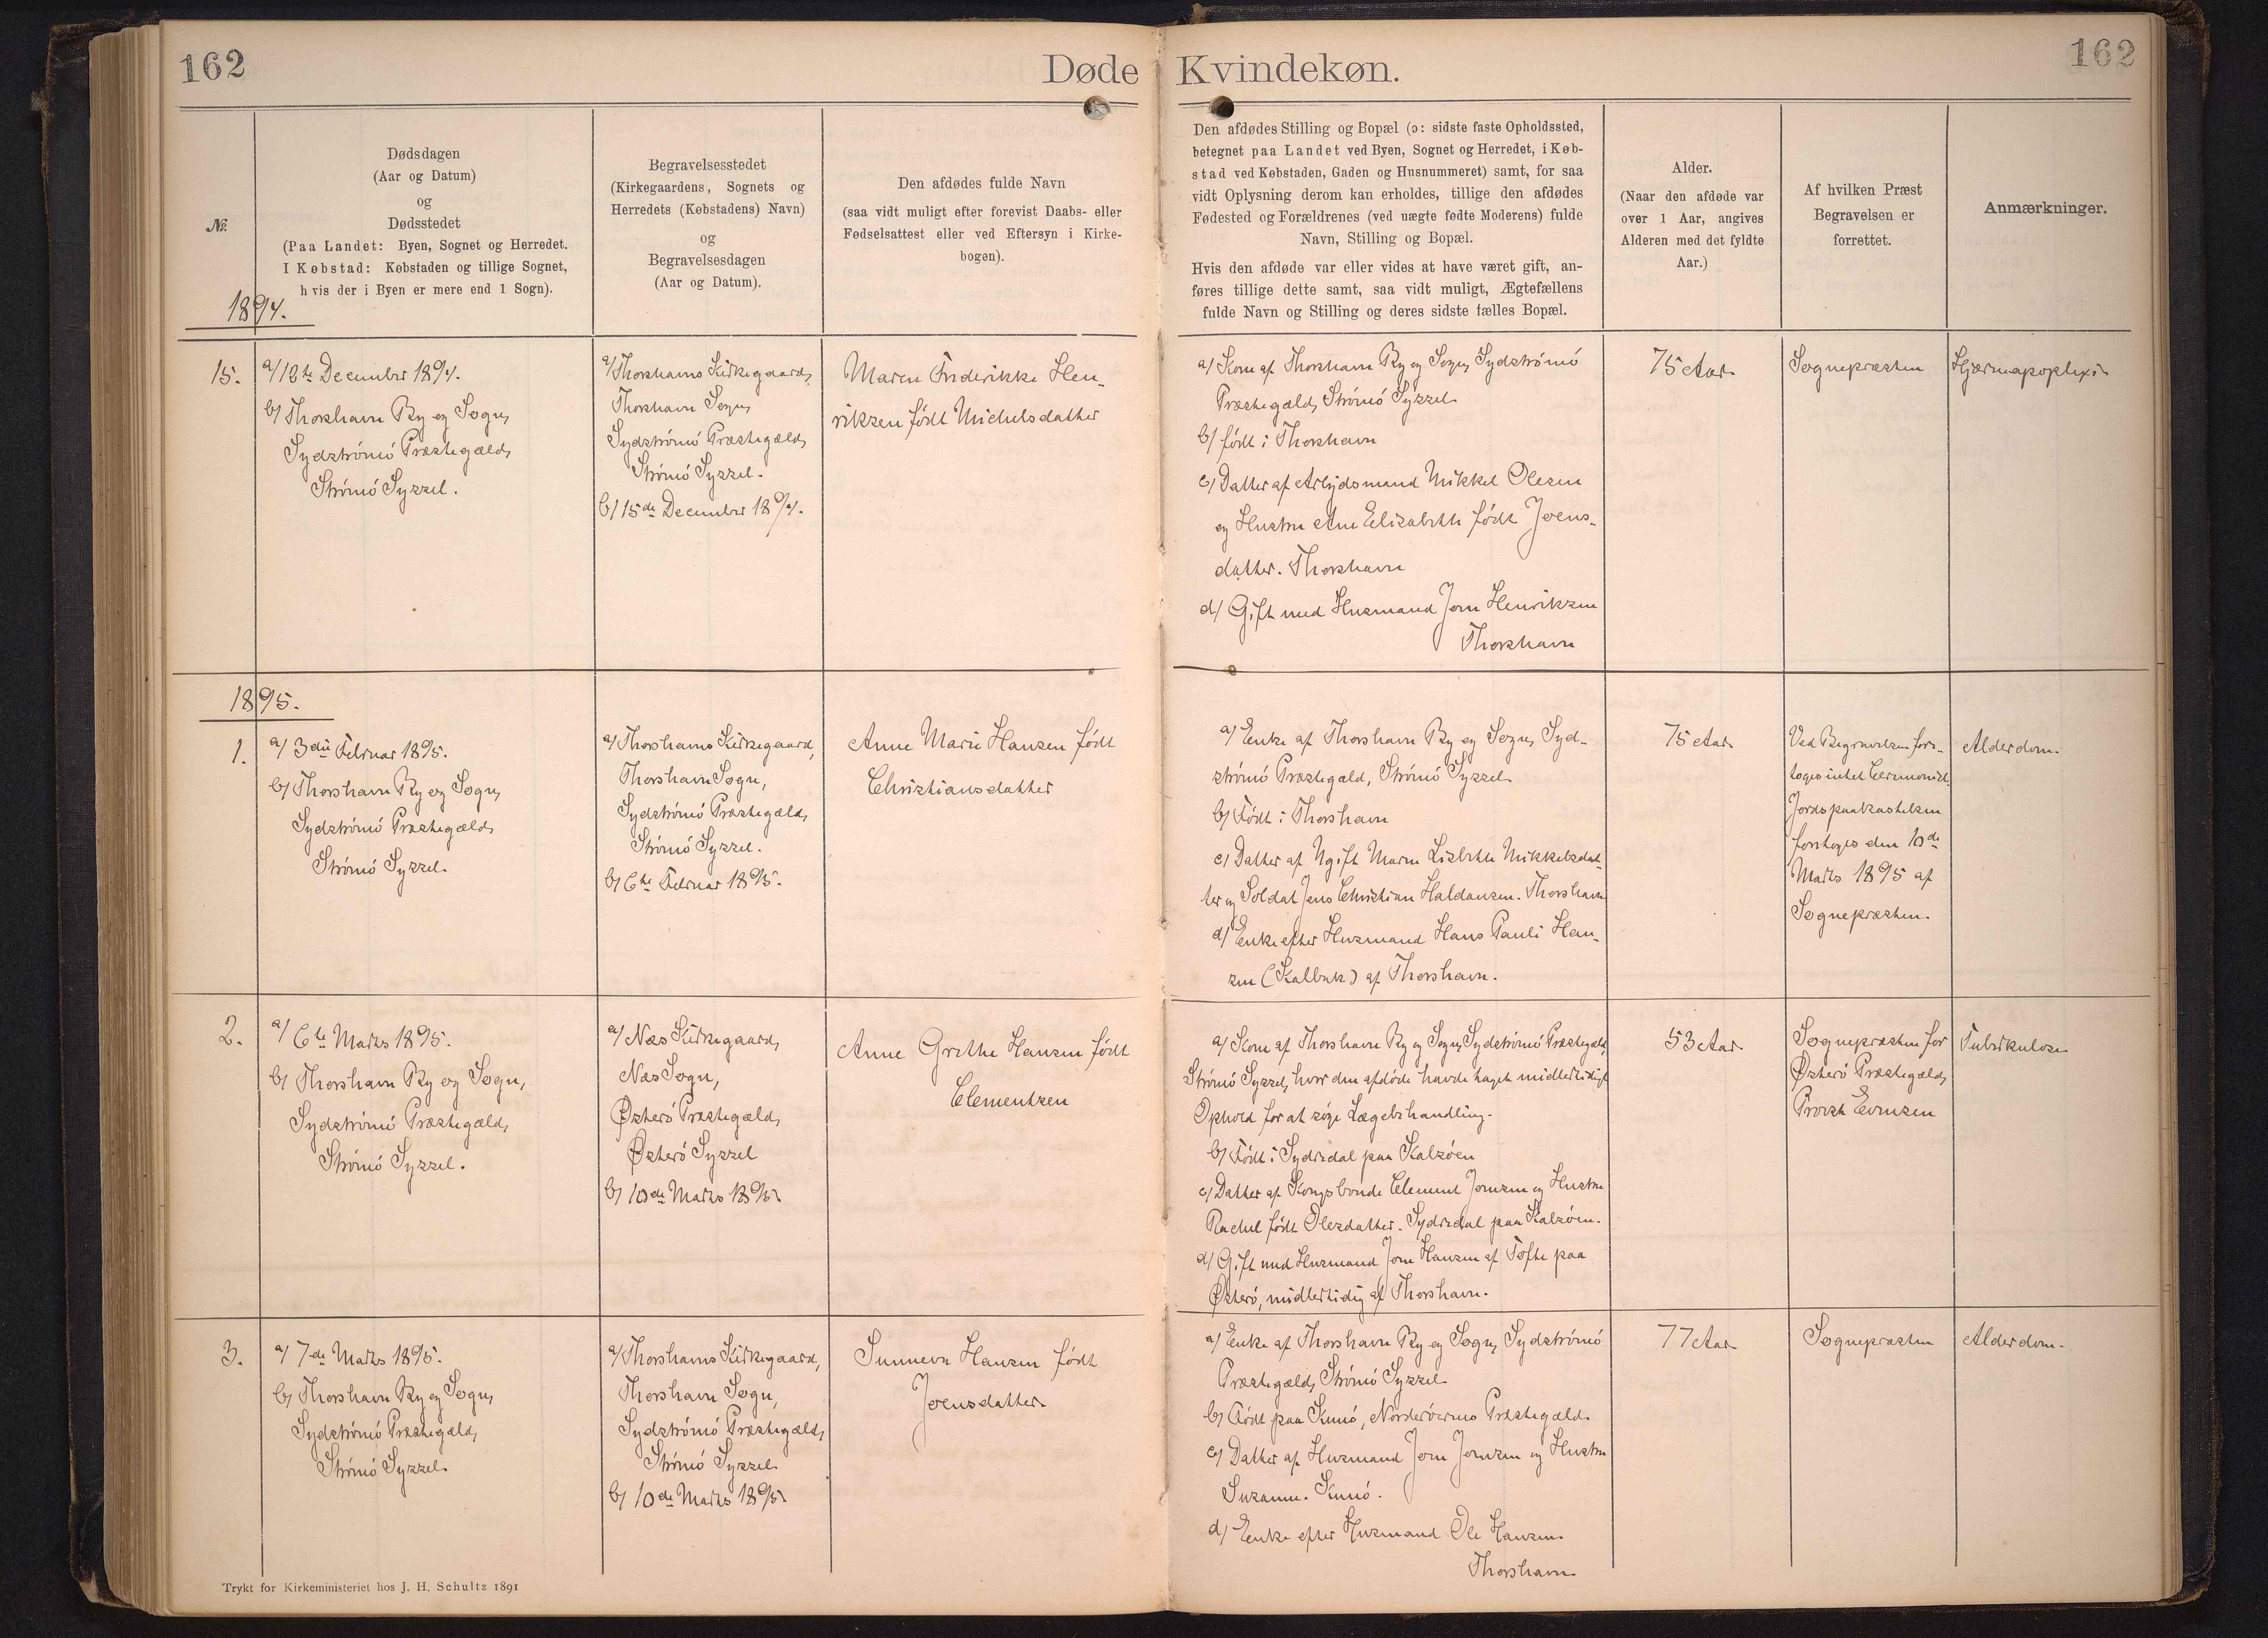 162
Døde Kvindekøn.
162
No.
Dødsdagen
(Aar og Datum)
og
Dødsstedet
(Paa Landet: Byen, Sognet og Herredet.
I Købstad: Købstaden og tillige Sognet,
hvis der i Byen er mere end 1 Sogn).
Begravelsesstedet
(Kirkegaardens, Sognets og
Herredets (Købstadens) Navn)
og
Begravelsesdagen
(Aar og Datum).
Den afdødes fulde Navn
(saa vidt muligt efter forevist Daabs- eller
Fødselsattest eller ved Eftersyn i Kirke-
bogen).
Den afdødes Stilling og Bopæl (ɔ: sidste faste Opholdssted,
betegnet paa Landet ved Byen, Sognet og Herredet, i Køb-
stad ved Købstaden, Gaden og Husnummeret) samt, for saa
vidt Oplysning derom kan erholdes, tillige den afdødes
Fødested og Forældrenes (ved uægte fødte Moderens) fulde
Navn, Stilling og Bopæl.
Hvis den afdøde var eller vides at have været gift, an-
føres tillige dette samt, saa vidt muligt, Ægtefællens
fulde Navn og Stilling og deres sidste fælles Bopæl.
Alder.
(Naar den afdøde var
over 1 Aar, angives
Alderen med det fyldte
Aar.)
Af hvilken Præst
Begravelsen er
forrettet.
Anmærkninger.
1894.
15.
a/ 12te December 1894.
b/ Thorshavn By og Sogn,
Sydstrømø Præstegæld,
Strømø Syssel.
a/ Thorshavns Kirkegaard,
Thorshavn Sogn,
Sydstrømø Præstegæld,
Strømø Syssel.
b/ 15de December 1894.
Maren Frederikke Hen-
riksen født Michelsdatter
a/ Kone af Thorshavn By og Sogn, Sydstrømø
Præstegæld, Strømø Syssel
b/ født i Thorshavn
c/ Datter af Arbejdsmand Mikkel Olesen
og Hustru Ane Elisabeth født Joens-
datter. Thorshavn
d/ Gift med Husmand Joen Henriksen
Thorshavn
75 Aar
Sognepræsten
Hjærneapoplexi
1895.
1.
a/ 3die Februar 1895.
b/ Thorshavn By og Sogn,
Sydstrømø Præstegæld,
Strømø Syssel.
a/ Thorshavns Kirkegaard,
Thorshavn Sogn,
Sydstrømø Præstegæld,
Strømø Syssel.
b/ 6te Februar 1895.
Anne Marie Hansen født
Christiansdatter
a/ Enke af Thorshavn By og Sogn, Syd-
strømø Præstegæld, Strømø Syssel
b/ Født i Thorshavn
c/ Datter af Ugift Maren Lisbeth Mikkelsdat-
ter og Soldat Jens Christian Haldansen. Thorshavn
d/ Enke efter Husmand Hans Pauli Han-
sen (Kalbak) af Thorshavn.
75 Aar
Ved Begravelsen fore-
toges intet Ceremoniel.
Jordspaakastelsen
foretoges den 10de
Marts 1895 af
Sognepræsten.
Alderdom.
2.
a/ 6te Marts 1895.
b/ Thorshavn By og Sogn,
Sydstrømø Præstegæld,
Strømø Syssel.
a/ Næs Kirkegaard,
Næs Sogn,
Østerø Præstegæld,
Østerø Syssel
b/ 10de Marts 1895
Anne Grethe Hansen født
Clementsen
a/ Kone af Thorshavn By og Sogn, Sydstrømø Præstegæld,
Strømø Syssel, hvor den afdøde havde taget midlertidigt
Ophold for at søge Lægebehandling.
b/ Født i Sydredal paa Kalsøen
c/ Datter af Kongsbonde Clement Joensen og Hustru
Rachel født Olesdatter. Sydredal paa Kalsøen.
d/ Gift med Husmand Joen Hansen af Tofte paa
Østerø, midlertidig af Thorshavn.
53 Aar
Sognepræsten for
Østerø Præstegæld,
Provst Evensen
Tuberkulose
3.
a/ 7de Marts 1895.
b/ Thorshavn By og Sogn,
Sydstrømø Præstegæld,
Strømø Syssel.
a/ Thorshavns Kirkegaard,
Thorshavn Sogn,
Sydstrømø Præstegæld,
Strømø Syssel
b/ 10de Marts 1895
Sunneva Hansen født
Joensdatter
a/ Enke af Thorshavn By og Sogn, Sydstrømø
Præstegæld, Strømø Syssel
b/ Født paa Kunø, Norderøernes Præstegæld.
c/ Datter af Husmand Joen Joensen og Hustru
Susanne. Kunø.
d/ Enke efter Husmand Ole Hansen.
Thorshavn
77 Aar
Sognepræsten
Alderdom.
Trykt for Kirkeministeriet hos J. H. Schultz 1891